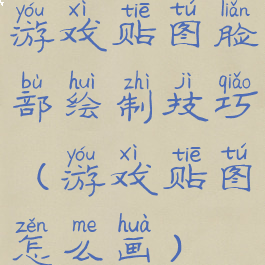 yóu xì tiē tú liǎn
游戏贴图脸
bù huì zhì jì qiǎo
部绘制技巧
yóu xì tiē tú
（游戏贴图
zěn me huà
怎么画）